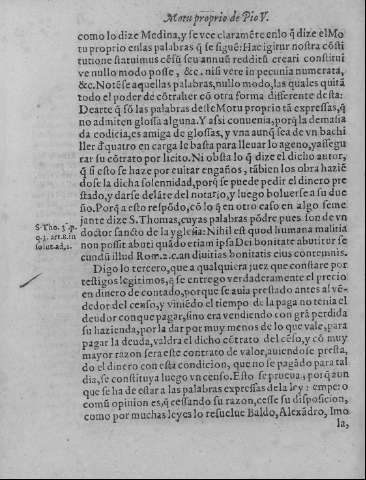 Motu proprio de Pio V.
como lo dize Medina, y se vee claramẽte enlo q̃ dize el Mo
tu proprio enlas palabras q̃ se siguẽ: Hac igitur nostra cõsti
tutione statuimus cẽsũ seu annuũ redditũ creari constitui
ve nullo modo posse, &c. nisi vere in pecunia numerata,
&c. Notẽse aquellas palabras, nullo modo, las quales quitã
todo el poder de cõtralter cõ otra forma differente desta:
Dearte q̃ sõ las palabras deste Motu proprio tã expressas, q̃
no admiten glossa alguna. Y assi convenia, porq̃ la demasia
da codicia, es amiga de glossas, y vna aunq̃ sea de vn bachi
ller d'quatro en carga le basta para lleuar lo ageno, y assegu
rar su cõtrato por licito. Ni obsta lo q̃ dize el dicho autor,
q̃ si esto se haze por euitar engaños, tãbien los obra haziẽ
dose la dicha solennidad, porq̃ se puede pedir el dinero pre
stado, y darse delãte del notario, y luego boluerse a su due
ño. Porq̃ a esto respõdo, cõ lo q̃ en otro caso en algo seme
jante dize S. Thomas, cuyas palabras põdre pues son de vn
doctor sancto de la yglesia: Nihil est quod humana malitia
non possit abuti quãdo etiam ipsa Dei bonitate abutitur se
cundũ illud Rom. 2. c. an diuitias bonitatis eius contemnis.
S. Tho. 3. p.
q. 3. art. 8. in
solut. ad, 1.
Digo lo tercero, que a qualquiera juez que constare por
testigos legitimos, q̃ se entrego verdaderamente el precio
en dinero de contado, porque se auia prestado antes al vẽ-
dedor del censo, y viniẽdo el tiempo de la paga no tenia el
deudor con que pagar, sino era vendiendo con grã perdida
su hazienda, por la dar por muy menos de lo que vale, para
pagar la deuda, valdra el dicho cõtrato del cẽso, y cõ muy
mayor razon sera este contrato de valor, auiendose presta,
do el dinero con esta condicion, que no se pagãdo para tal
dia, se constituya luego vn censo. Esto se prueua, porq̃ aun
que se ha de estar a las palabras expressas de la ley: empero
comũ opinion es, q̃ cessando su razon, cesse su disposicion,
como por muchas leyes lo resuelue Baldo, Alexãdro, Imo
la,